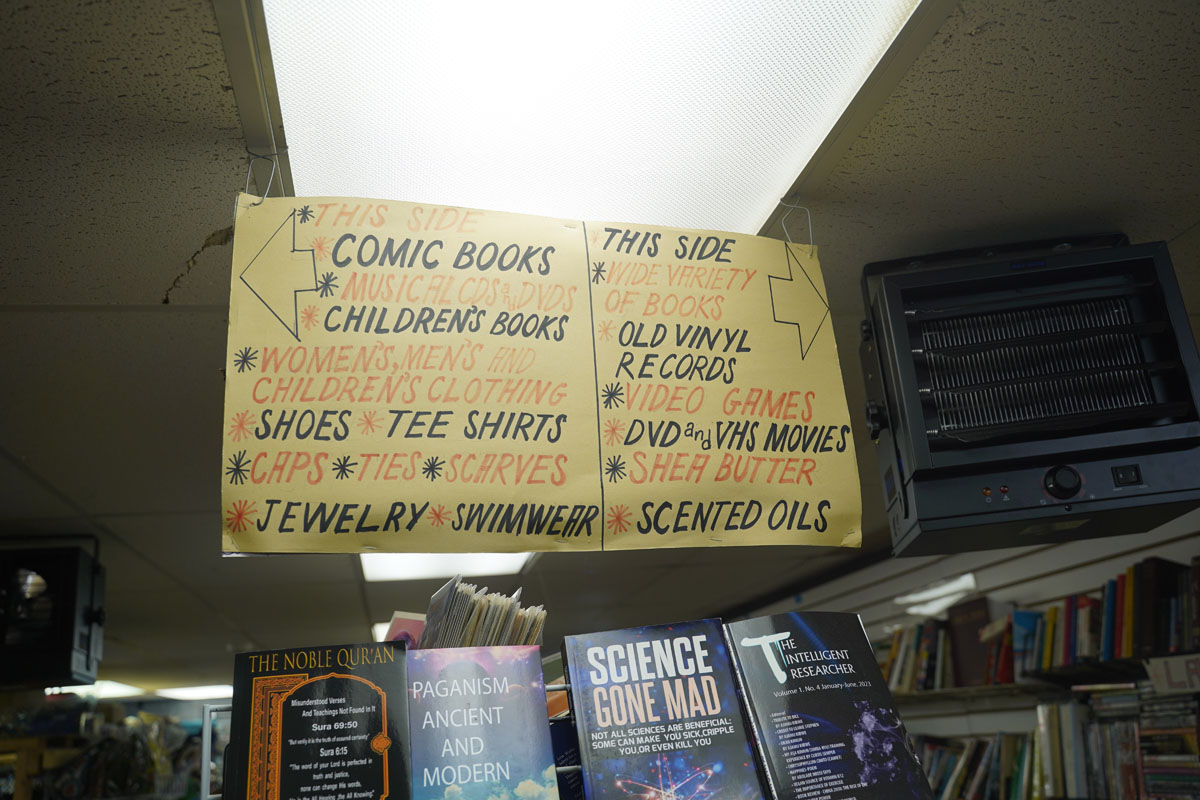 THIS SIDE
COMIC BOOKS
MUSICAL CDS and DVDS
CHILDREN'S BOOKS
WOMEN'S, MEN'S AND
CHILDREN'S CLOTHING
SHOES * TEE SHIRTS
CAPS * TIES * SCARVES
JEWELRY * SWIMWEAR
THIS SIDE
WIDE VARIETY
OF BOOKS
OLD VINYL
RECORDS
VIDEO GAMES
DVD and VHS MOVIES
SHEA BUTTER
SCENTED OILS
THE NOBLE QUR'AN
Misunderstood Verses
And Teachings Not Found in It
Sura 69:50
"But verily it is the truth of assured certainty"
Sura 6:15
"The word of your Lord is perfected in
truth and justice,
none can change His words.
PAGANISM
ANCIENT
AND
MODERN
SCIENCE
GONE MAD
NOT ALL SCIENCES ARE BENEFICIAL:
SOME CAN MAKE YOU SICK, CRIPPLE
YOU, OR EVEN KILL YOU
THE
INTELLIGENT
RESEARCHER
Volume 1, No. 4 January-June, 2023